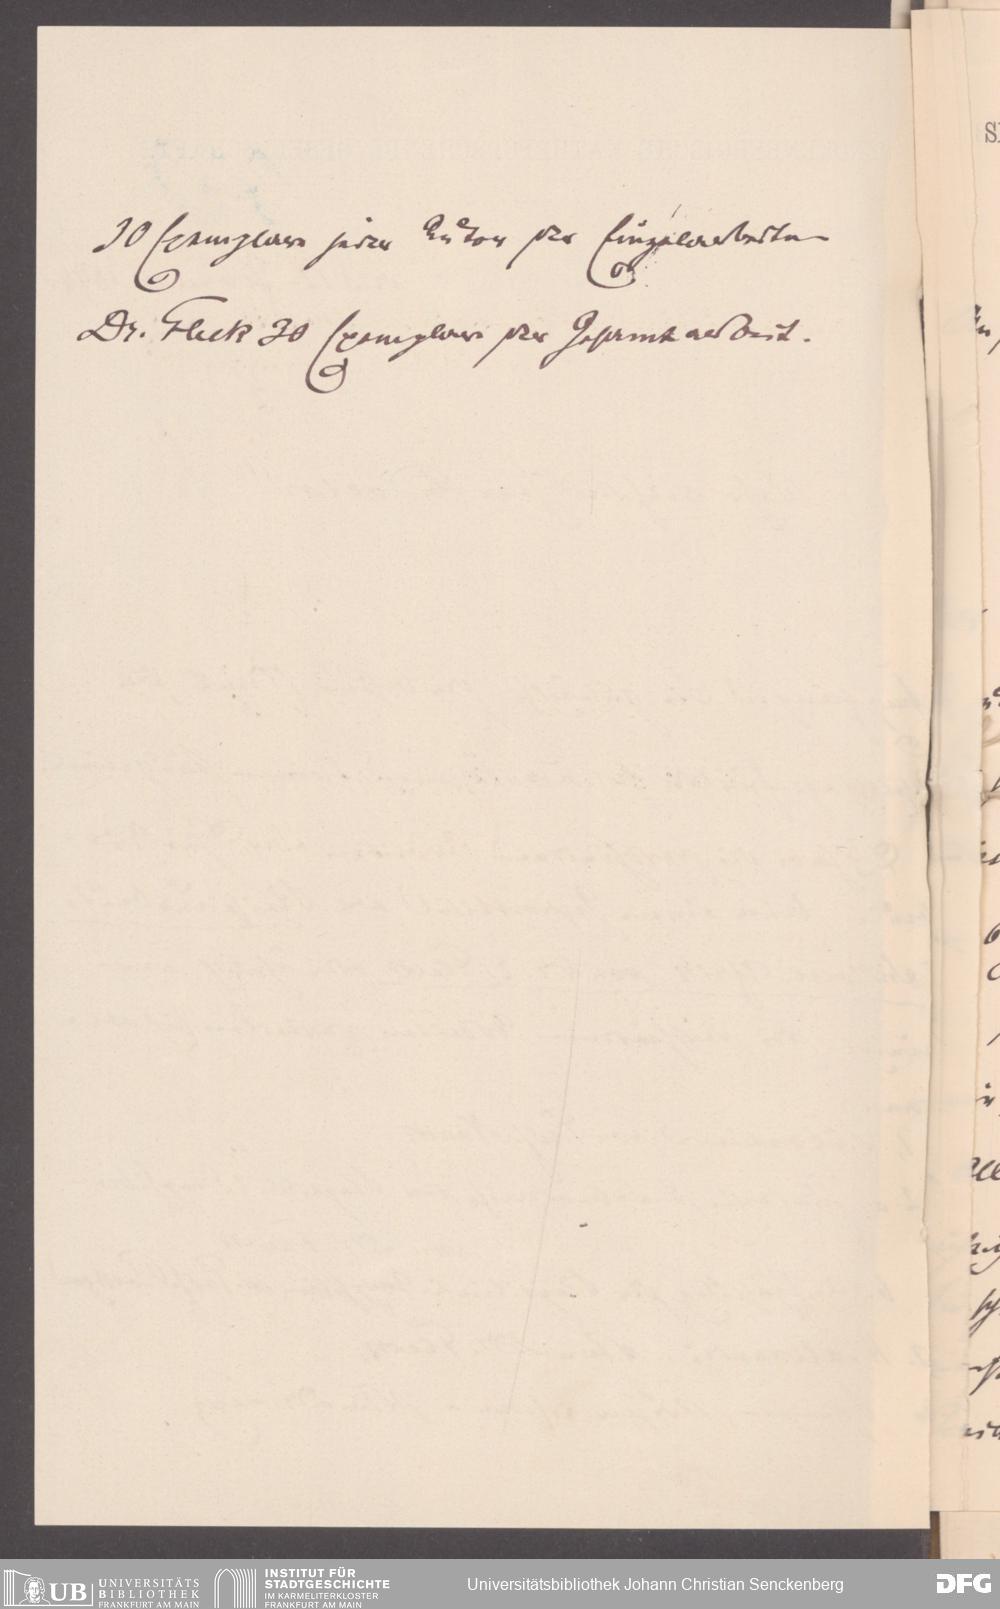 30 Exemplare jeder Autor der Einzelarbeiten
Dr. Fleck 30 Exemplare der Gesamtarbeit.
UB UNIVERSITÄTS
BIBLIOTHEK
FRANKFURT AM MAIN
INSTITUT FÜR
STADTGESCHICHTE
IM KARMELITERKLOSTER
FRANKFURT AM MAIN
Universitätsbibliothek Johann Christian Senckenberg
DFG